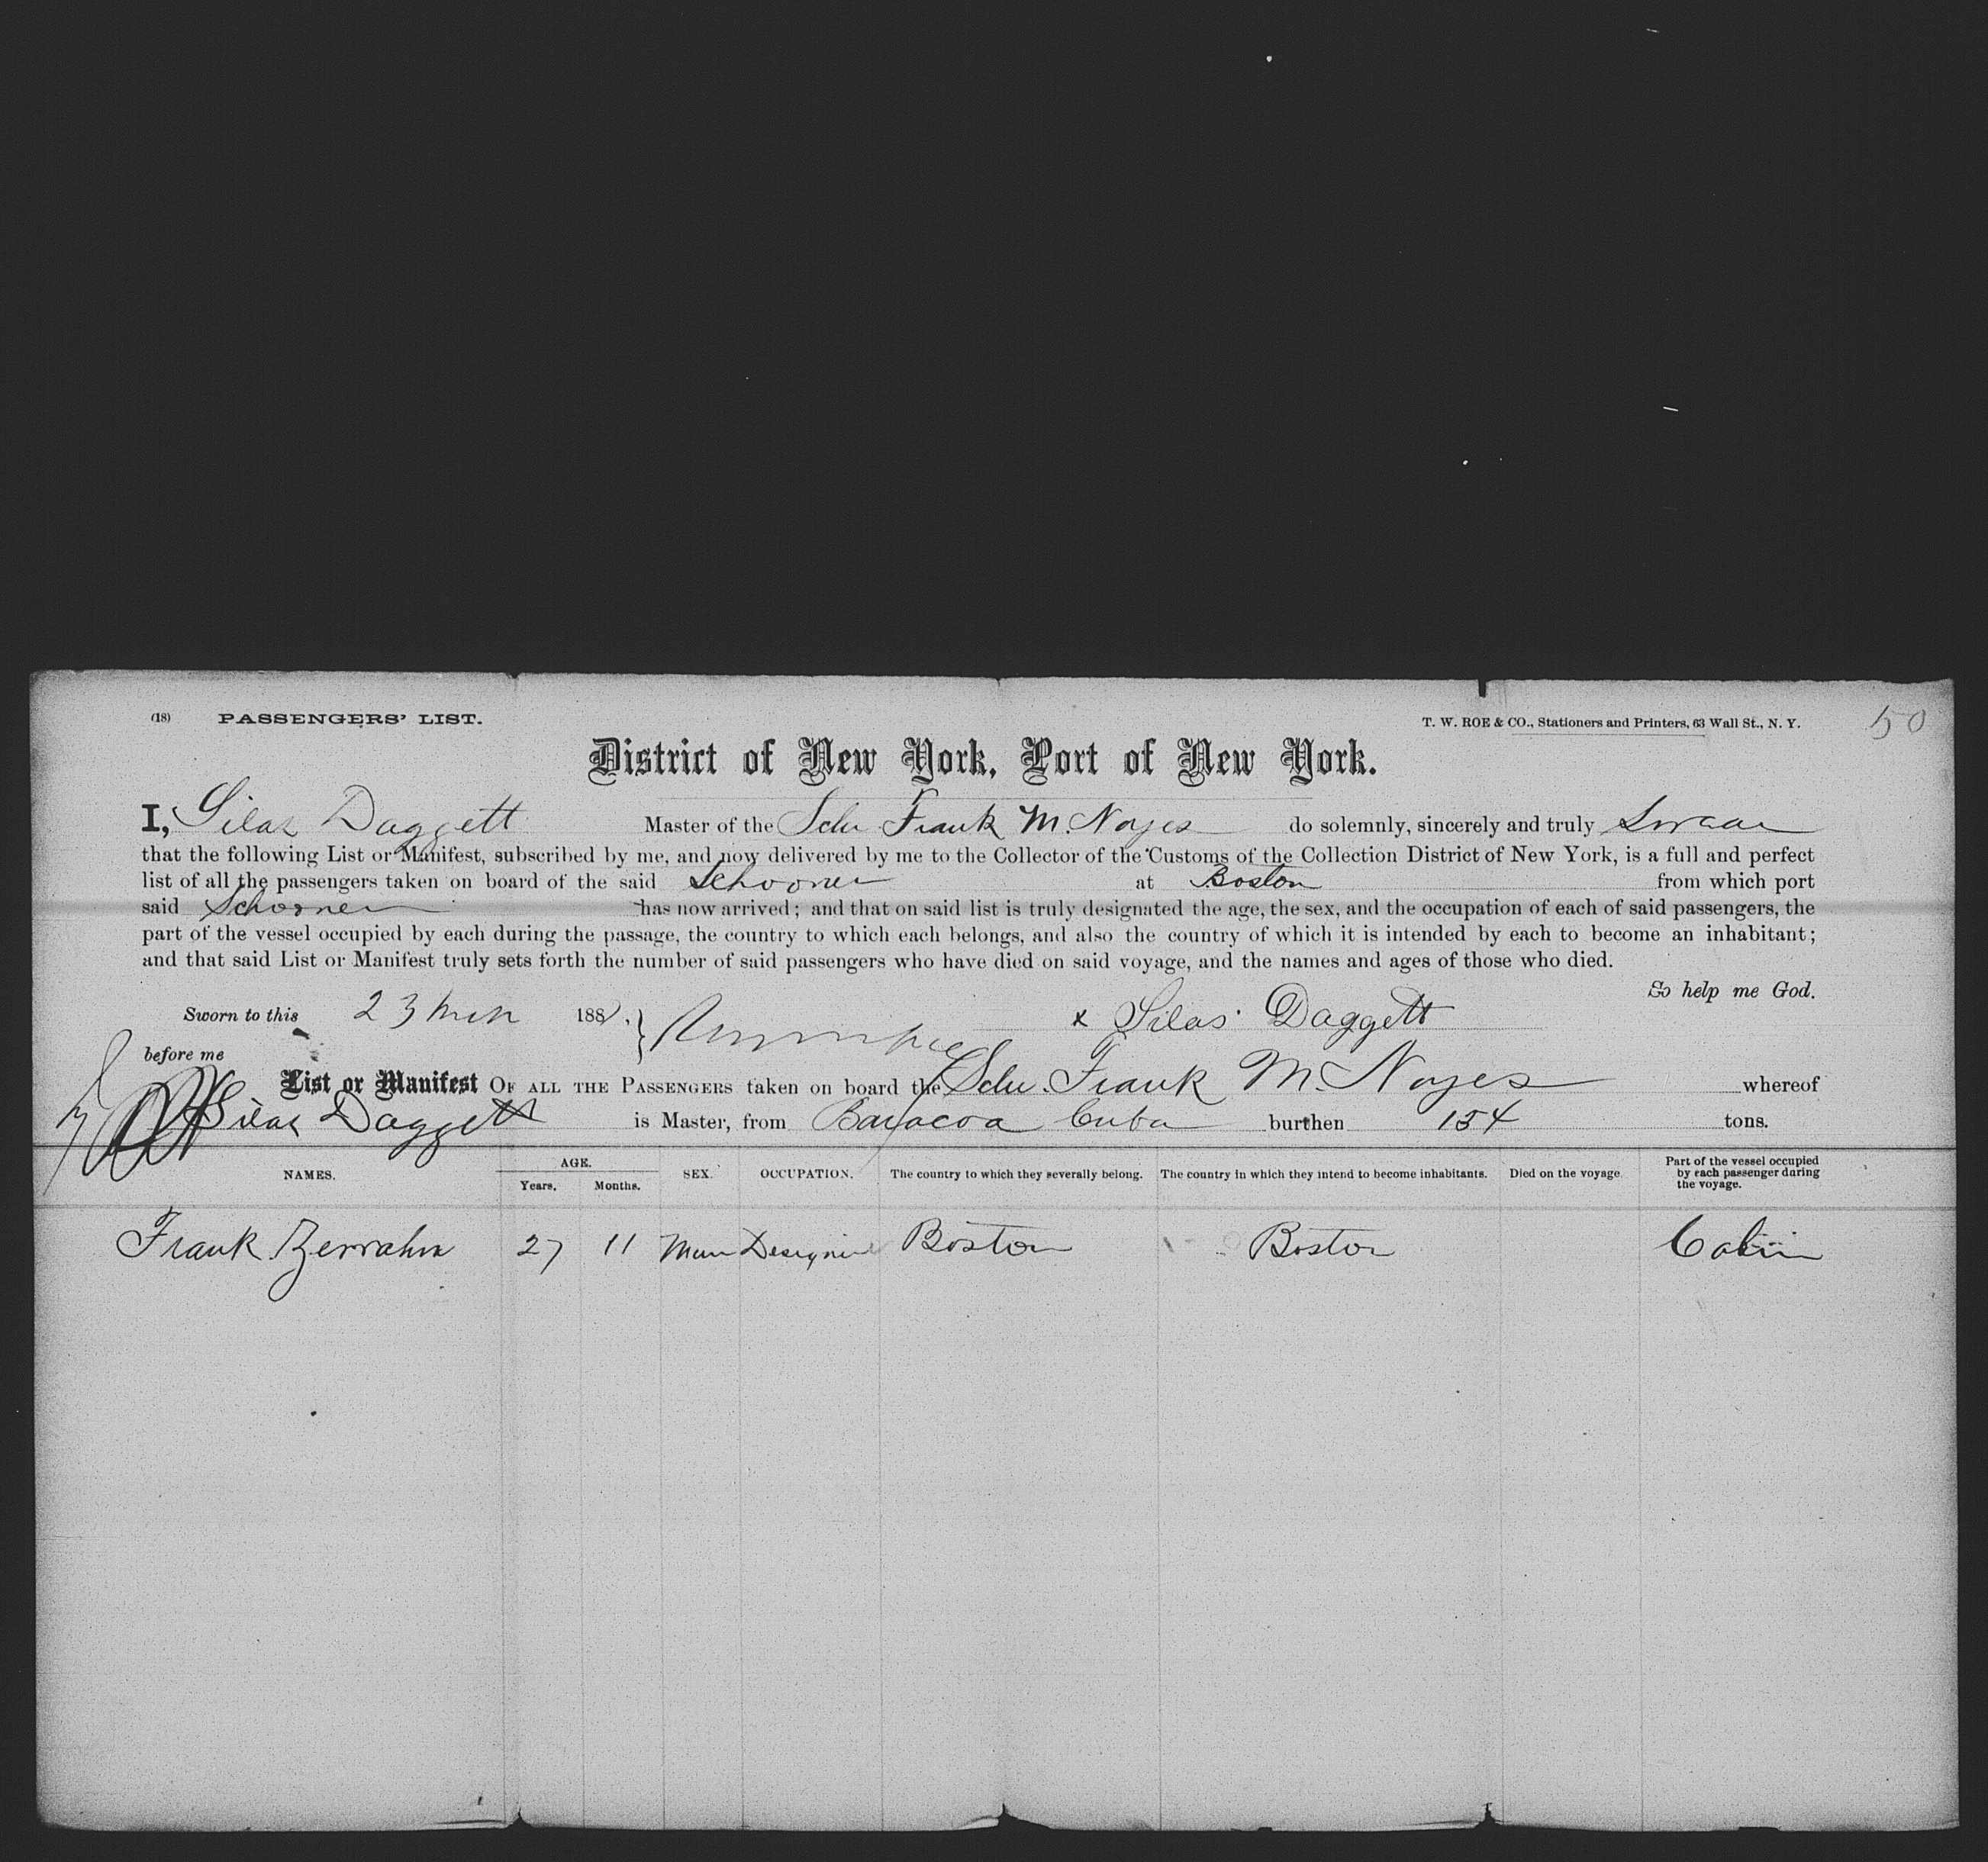 (18) PASSENGERS' LIST. T. W. ROE & CO., Stationers and Printers, 63 Wall St., N. Y. 50
District of New York, Port of New York.
I, Silas Daggett Master of the Schr Frank M. Noyes do solemnly, sincerely and truly Swear
that the following List or Manifest, subscribed by me, and now delivered by me to the Collector of the Customs of the Collection District of New York, is a full and perfect
list of all the passengers taken on board of the said Schooner at Boston from which port
said Schooner has now arrived; and that on said list is truly designated the age, the sex, and the occupation of each of said passengers, the
part of the vessel occupied by each during the passage, the country to which each belongs, and also the country of which it is intended by each to become an inhabitant;
and that said List or Manifest truly sets forth the number of said passengers who have died on said voyage, and the names and ages of those who died.
So help me God.
Sworn to this 23 188 x Silas Daggett
before me
List or Manifest OF ALL THE PASSENGERS taken on board the Schr. Frank M. Noyes whereof
Silas Daggett is Master, from Baracoa Cuba burthen 154 tons.
NAMES. AGE. Years. Months. SEX. OCCUPATION. The country to which they severally belong. The country in which they intend to become inhabitants. Died on the voyage. Part of the vessel occupied by each passenger during the voyage.
Frank Zerrahn 27 11 Man Designer Boston Boston Cabin